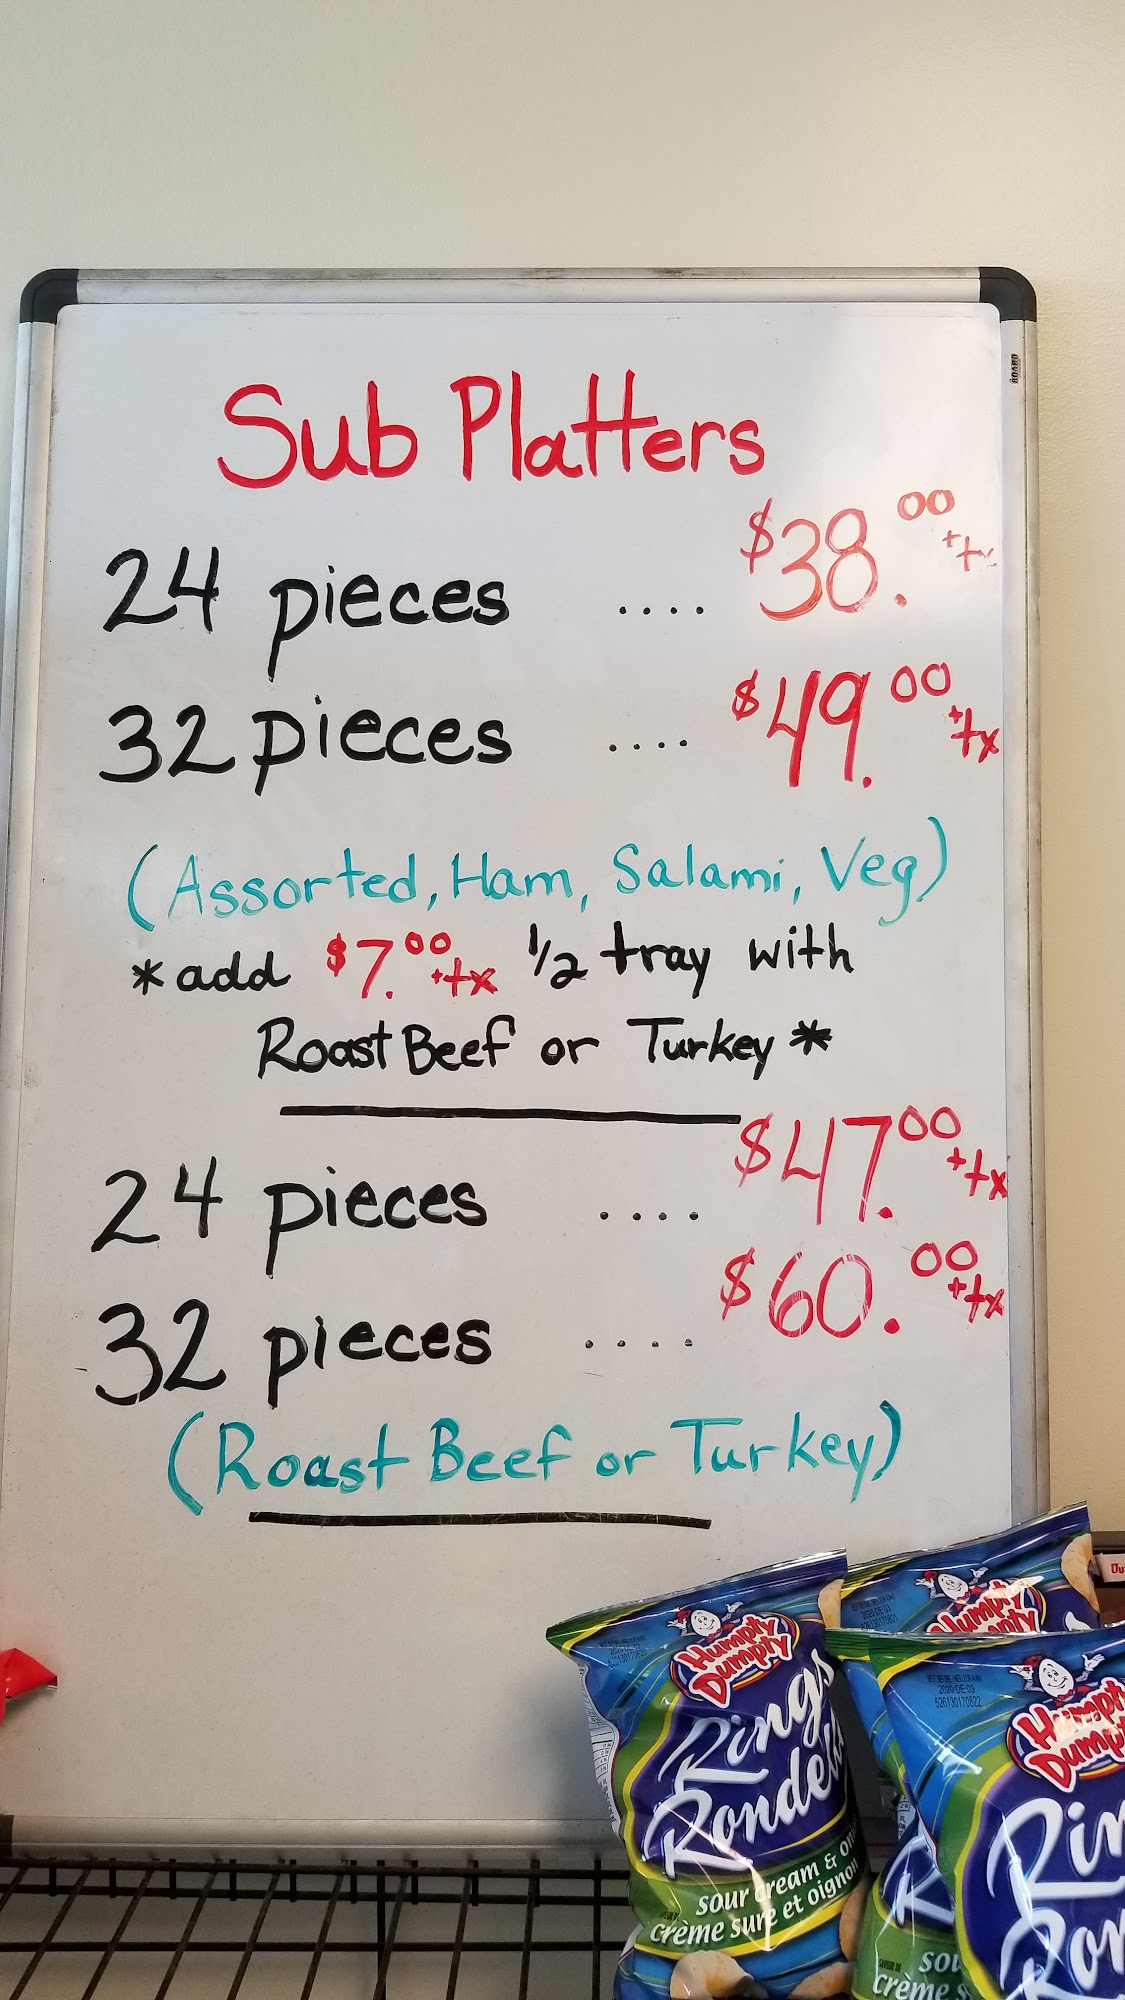 BOARD
Sub Platters
24 pieces .... $38.00 +tx
32 pieces .... $49.00 +tx
(Assorted, Ham, Salami, Veg)
*add $7.00 +tx 1/2 tray with
Roast Beef or Turkey*
24 pieces .... $47.00 +tx
32 pieces .... $60.00 +tx
(Roast Beef or Turkey)
Humpty
Dumpty
Rings
Rondelles
sour cream & onion
crème sure et oignon
Humpty
Dumpty
2020 DE 03
Humpty
Dumpty
2020 DE 03
526130170622
Rin
Ron
sou
crème s